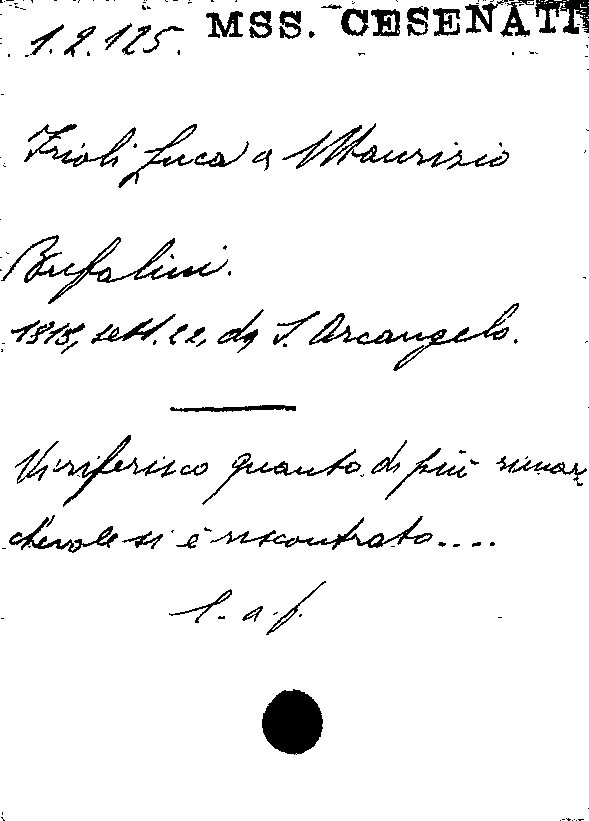 1.2.125. MSS. CESENATI
Frioli Luca a Maurizio
Bufalini.
1818, sett. 22, da S. Arcangelo.
Vi riferisco quanto di più rimar-
chevole si è riscontrato....
l. a. f.